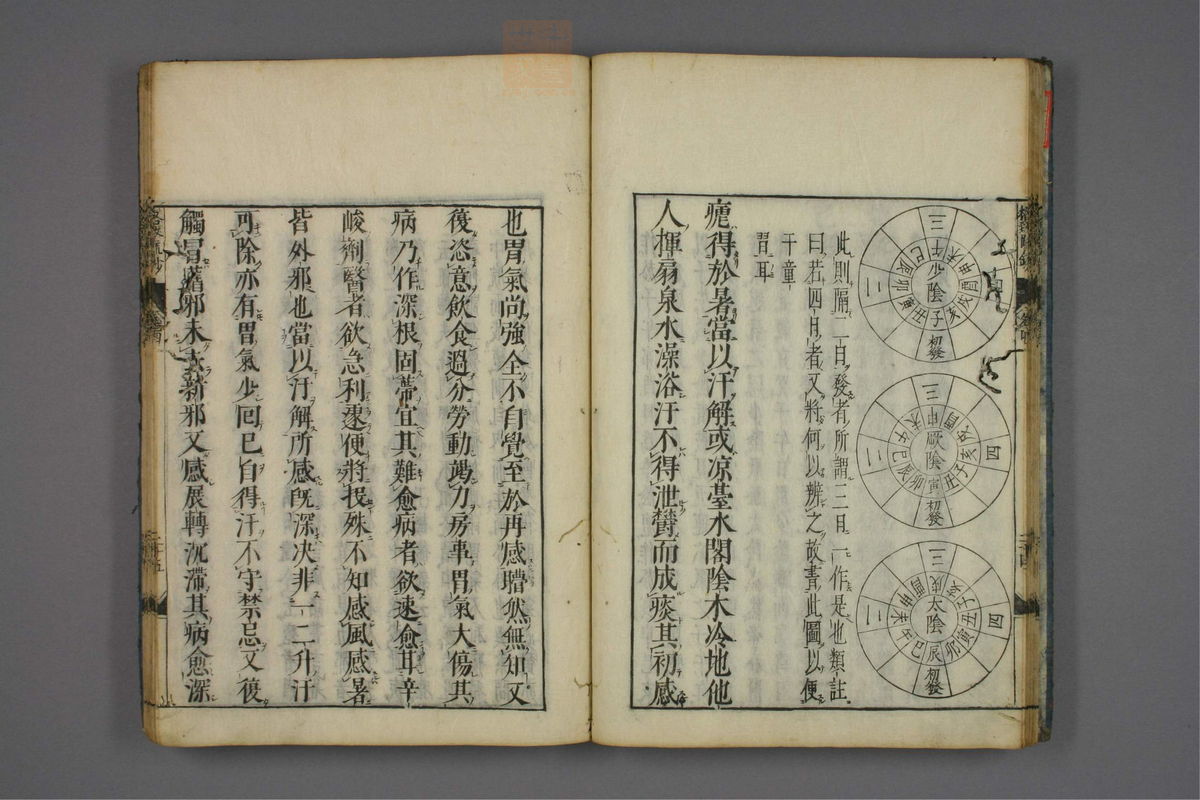 三
二
初發
少陰
子丑寅卯辰巳午未申酉戌亥
三
四
二
初發
厥陰
寅卯辰巳午未申酉戌亥子丑
三
四
二
初發
太陰
辰巳午未申酉戌亥子丑寅卯
此則隔二日發者所謂三日一作是也類註
曰若四日者又將何以辨之故畫此圖以便
于童
耳
瘧得於暑當以汗解或凉臺水閣陰木冷地他
人揮扇泉水澡浴汗不得泄鬱而成痰其初感
也胃氣尚強全不自覺至於再感懵然無知又
復恣意飲食過分勞動竭力房事胃氣大傷其
病乃作深根固蒂宜其難愈病者欲速愈甘辛
峻劑醫者欲急利速便將投殊不知感風感暑
皆外邪也當以汗解所感旣深决非一二升汗
可除亦有胃氣少回已自得汗不守禁忌又復
觸冒舊邪未去新邪又感展轉沉滯其病愈深